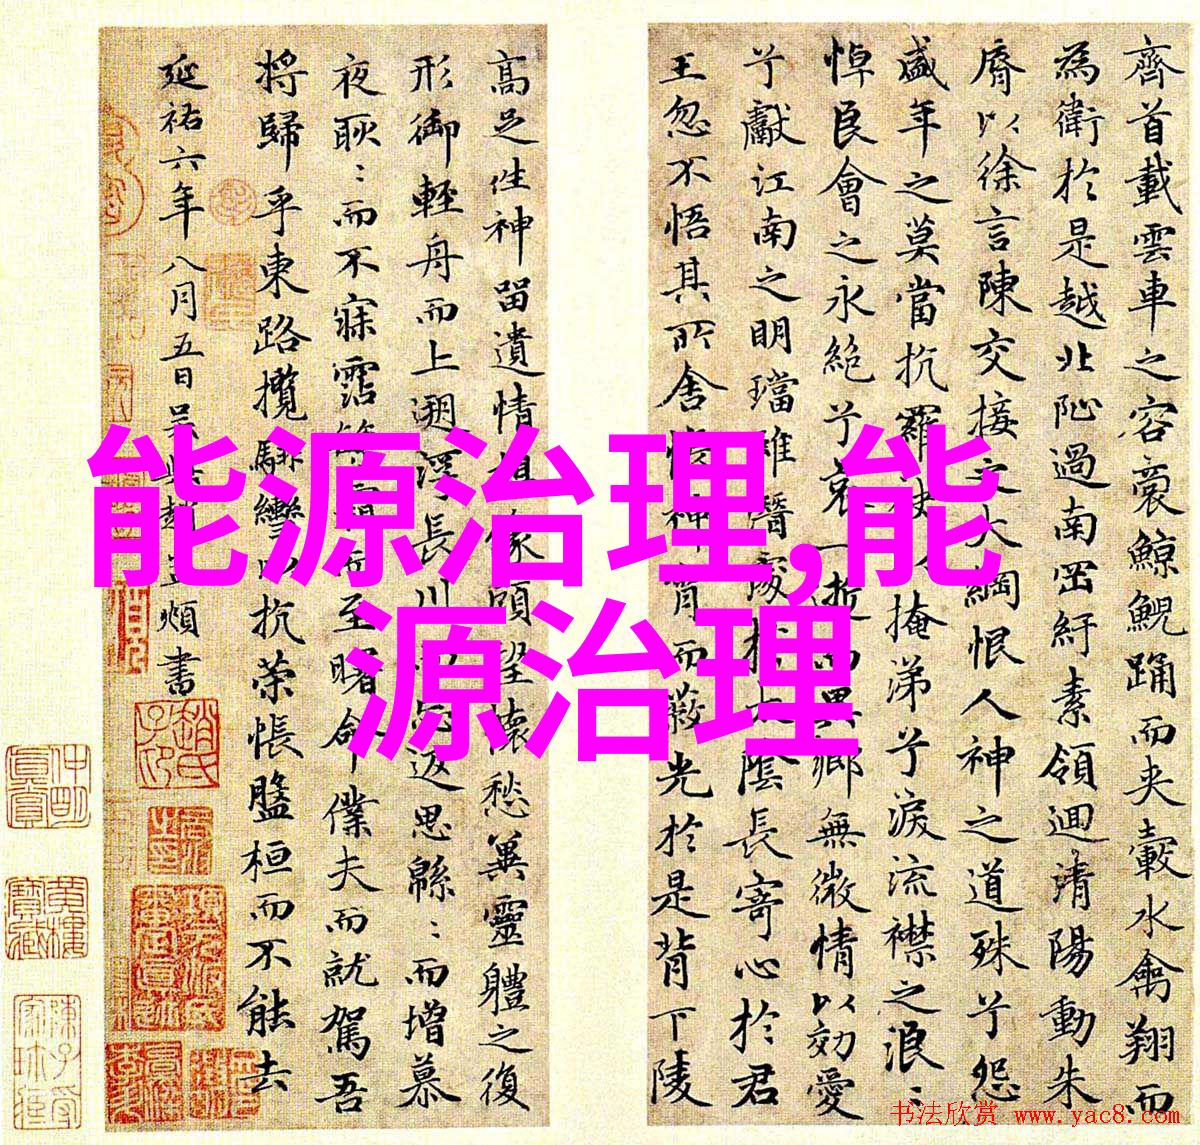 齊首載雲車之容裔鯨鯢踊而夾轂水禽翔而
為衛於是越北沚過南岡紆素領迴清陽動朱
脣以徐言陳交接之大綱恨人神之道殊兮怨
盛年之莫當抗羅袂以掩涕兮淚流襟之浪〻
悼良會之永絕兮哀一逝而異鄉無微情以効愛
兮獻江南之明璫雖潛處於太陰長寄心於君
王忽不悟其所舍悵神宵而蔽光於是背下陵
高足往神留遺情想像顧望懷愁冀靈體之復
形御輕舟而上遡浮長川而忘返思緜〻而增慕
夜耿〻而不寐霑繁霜而至曙命僕夫而就駕吾
將歸乎東路攬騑轡以抗策悵盤桓而不能去
延祐六年八月五日吳興趙孟頫書
能源治理,能
源治理
书法欣赏 www.yac8.com